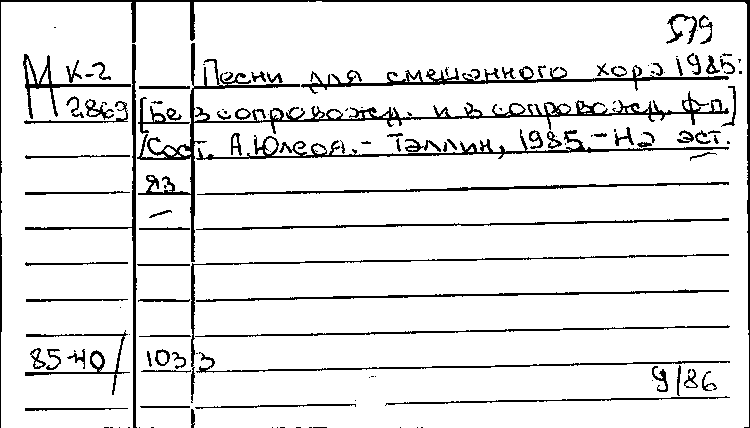 579
М К-2 Песни для смешанного хора 1985:
2869 [Без сопровожд. и в сопровожд. ф-п.]
/Сост. А.Юлеоя.- Таллин, 1985.- На эст.
яз.
85-НО/ 1033
9/86